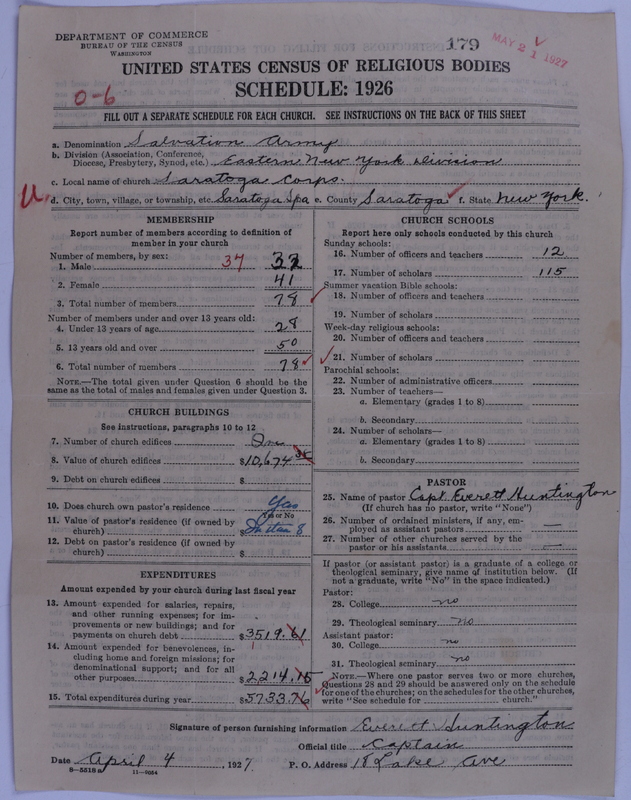 DEPARTMENT OF COMMERCE
BUREAU OF THE CENSUS
WASHINGTON
179
MAY 21 1927
UNITED STATES CENSUS OF RELIGIOUS BODIES
SCHEDULE: 1926
0-6
FILL OUT A SEPARATE SCHEDULE FOR EACH CHURCH. SEE INSTRUCTIONS ON THE BACK OF THIS SHEET
a. Denomination Salvation Army
b. Division (Association, Conference, Diocese, Presbytery, Synod, etc.) Eastern New York Division
c. Local name of church Saratoga Corps.
d. City, town, village, or township, etc. Saratoga Spa e. County Saratoga f. State New York.
MEMBERSHIP
Report number of members according to definition of
member in your church
Number of members, by sex:
1. Male 37
2. Female 41
3. Total number of members 78
Number of members under and over 13 years old:
4. Under 13 years of age 28
5. 13 years old and over 50
6. Total number of members 78
NOTE.—The total given under Question 6 should be the
same as the total of males and females given under Question 3.
CHURCH BUILDINGS
See instructions, paragraphs 10 to 12
7. Number of church edifices One
8. Value of church edifices $10,674
9. Debt on church edifices $
10. Does church own pastor's residence Yes
Yes or No
11. Value of pastor's residence (if owned by
church) $
12. Debt on pastor's residence (if owned by
church) $
EXPENDITURES
Amount expended by your church during last fiscal year
13. Amount expended for salaries, repairs,
and other running expenses; for im-
provements or new buildings; and for
payments on church debt $3519.61
14. Amount expended for benevolences, in-
cluding home and foreign missions; for
denominational support; and for all
other purposes $2,214.15
15. Total expenditures during year $5733.76
CHURCH SCHOOLS
Report here only schools conducted by this church
Sunday schools:
16. Number of officers and teachers 12
17. Number of scholars 115
Summer vacation Bible schools:
18. Number of officers and teachers
19. Number of scholars
Week-day religious schools:
20. Number of officers and teachers
21. Number of scholars
Parochial schools:
22. Number of administrative officers
23. Number of teachers—
a. Elementary (grades 1 to 8)
b. Secondary
24. Number of scholars—
a. Elementary (grades 1 to 8)
b. Secondary
PASTOR
25. Name of pastor Capt. Everett Huntington
(If church has no pastor, write "None")
26. Number of ordained ministers, if any, em-
ployed as assistant pastors —
27. Number of other churches served by the
pastor or his assistants —
If pastor (or assistant pastor) is a graduate of a college or
theological seminary, give name of institution below. (If
not a graduate, write "No" in the space indicated.)
Pastor:
28. College no
29. Theological seminary no
Assistant pastor:
30. College no
31. Theological seminary no
NOTE.—Where one pastor serves two or more churches,
Questions 28 and 29 should be answered only on the schedule
for one of the churches; on the schedules for the other churches,
write "See schedule for church."
Signature of person furnishing information Everett Huntington
Official title Captain
Date April 4, 1927 P. O. Address 18 Lake Ave
8—5518a 11—9654